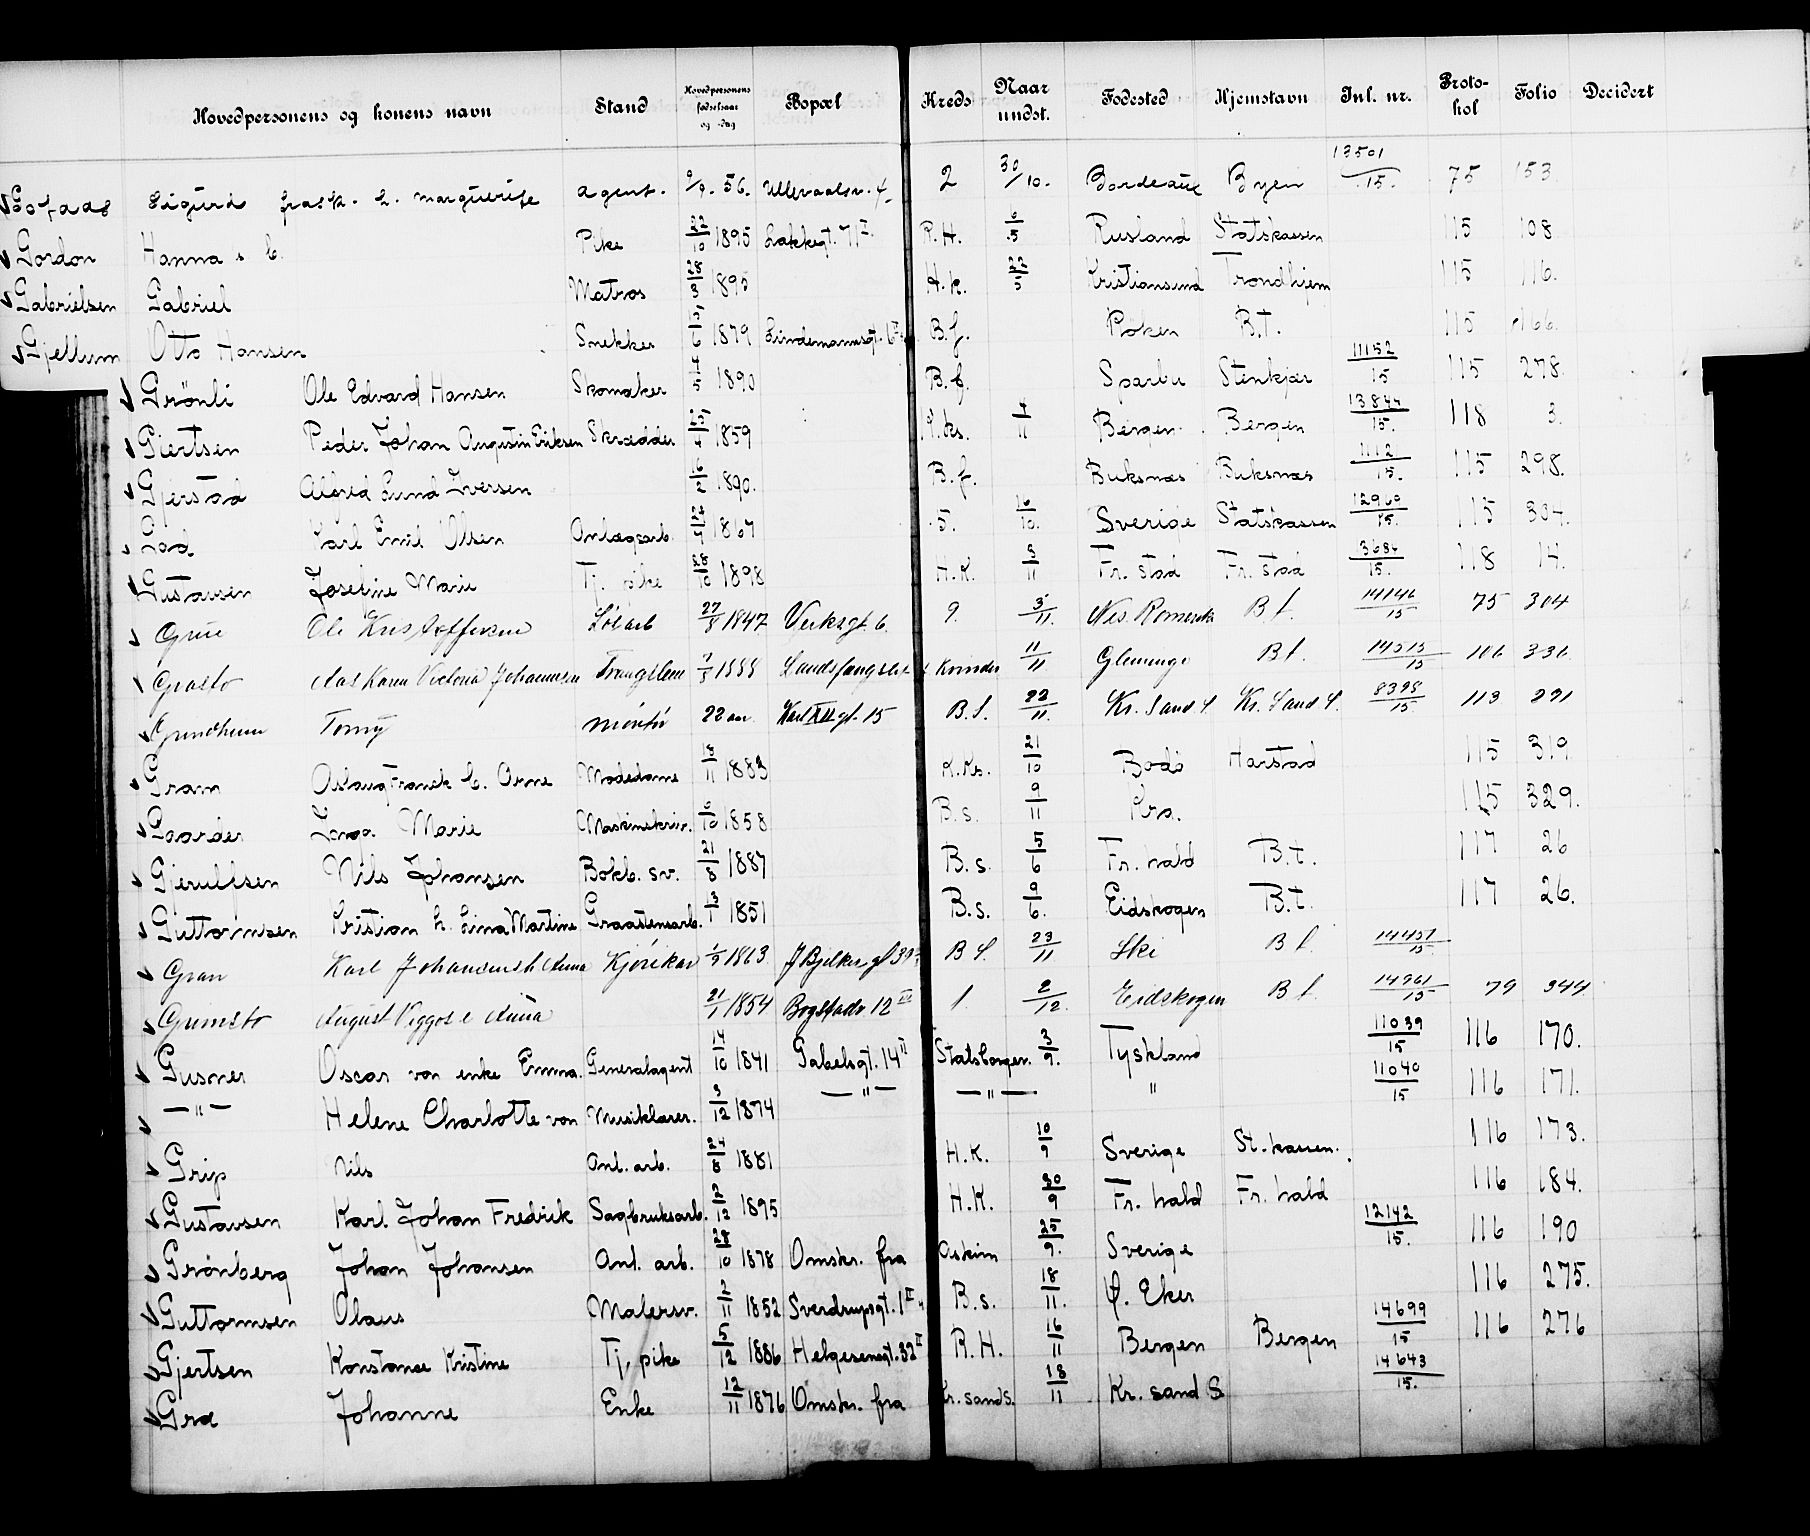 Hovedpersonens og konens navn Stand Hovedpersonens fødselsaar og -dag Bopæl Kreds Naar undst. Fødested Hjemstavn Inl. nr. Protokol Folio Decidert
Sigurd frask. h. Marguerite agent. 9/9. 56. Ullevaalsv. 4 2 30/10. Bordeaux Byen 13501/15. 75 153
Gordon Hanna s C. Pike 22/10 1895 Lakkegt. 71 I. R.H. 6/5 Rusland Statskassen 115 108
Gabrielsen Gabriel Matros 28/3 1895 H.K. 22/5 Kristiansund Trondhjem 115 116.
Gjellum Otto Hansen Snekker 15/6 1879 Lindemannsgt. B.f. Røken B.T. 115 166.
Grönli Ole Edvard Hansen Skomaker 4/5 1890 B.f. Sparbu Stenkjær 11152/15 115 278.
Giertsen Peder Johan Augustin Eriksen Skrædder 25/4 1859 K.ks. 4/11 Bergen Bergen 13844/15. 118 3.
Gjerstad Alfred Lund Iversen 16/2 1890. B.f. Buksnæs Buksnæs 1112/15. 115 298.
God Karl Emil Olsen Anlægsarb. 24/4 1867 5. 16/10. Sverige Statskassen 12960/15. 115 304.
Gustavsen Josefine Marie Tj. pike 28/10 1898 H.K. 9/11 Fr. stad Fr. stad 3684/15. 118 14.
Grue Ole Kristoffersen Løsarb 27/8 1847 Verksgt. 6. 9. 3/11. Nes Romerike B f. 14146/15 75 304
Grasto Aas Karen Victoria Johannesen Trangslem 7/5 1888 Landsfængslet Kvinder 11/11 Glemminge B f. 14515/15 106 336
Grundheim Tomy montør 22 aar Karl XII gt. 15 B.f. 22/11. Kr. Sand S. Kr. Sand S. 8398/15. 113 291
Gram Aslaug Franck C. Arne Modedame 18/11 1883 K.Ks. 21/10 Bodö Harstad 115 319.
Gaarder Inga Marie Maskinskriv. 6/10 1858 B.s. 9/11 Kra. 115 329.
Gjerulfsen Nils Johansen Bokb. sv. 21/8 1887 B.s. 5/6 Fr. hald B.t. 117 26
Guttormsen Kristian h. Lina Martine Graastensarb. 13/1 1851 B.s. 9/6. Eidskogen B.t. 117 26.
Gran Karl Johansen h Anna Kjørekar 1/9 1863 J Bjelkes gt 39 B f. 23/11 Ski B f. 14457/15.
Grimsto August Viggos e Anna 21/1 1854 Bogstadv 12 III 1. 2/12. Eidskogen B f. 14961/15 79 344
Gusner Oscar von enke Emma. Generalagent 14/10 1841 Gabelsgt. 14 II Statsborgen. 3/9. Tyskland 11039/15 116 170.
— " — Helene Charlotte von Musiklærer. 3/12 1874 — " — — " — " 11040/15 116 171.
Grip Nils Anl. arb. 24/8 1881 H.K. 10/9 Sverige St. kassen. 116 173.
Gustavsen Karl Johan Fredrik Sagbruksarb. 2/12 1895 H.K. 30/9 Fr. hald Fr. hald 116 184.
Grönberg Johan Johansen Anl. arb. 28/10 1878 Omskr. fra Askim 25/9. Sverige 12142/15. 116 190
Guttormsen Olaus Malersv. 2/11 1852 Sverdrupsgt. 1 II B.s. 18/11. Ø. Eker 116 275.
Gjertsen Konstanse Kristine Tj. pike 5/12 1886 Helgesensgt. 32 II R.H. 16/11 Bergen Bergen 14699/15 116 276
Gra Johanne Enke 12/11 1876 Omskr. fra Kr. sand S. 18/11 Kr. sand S 14643/15.